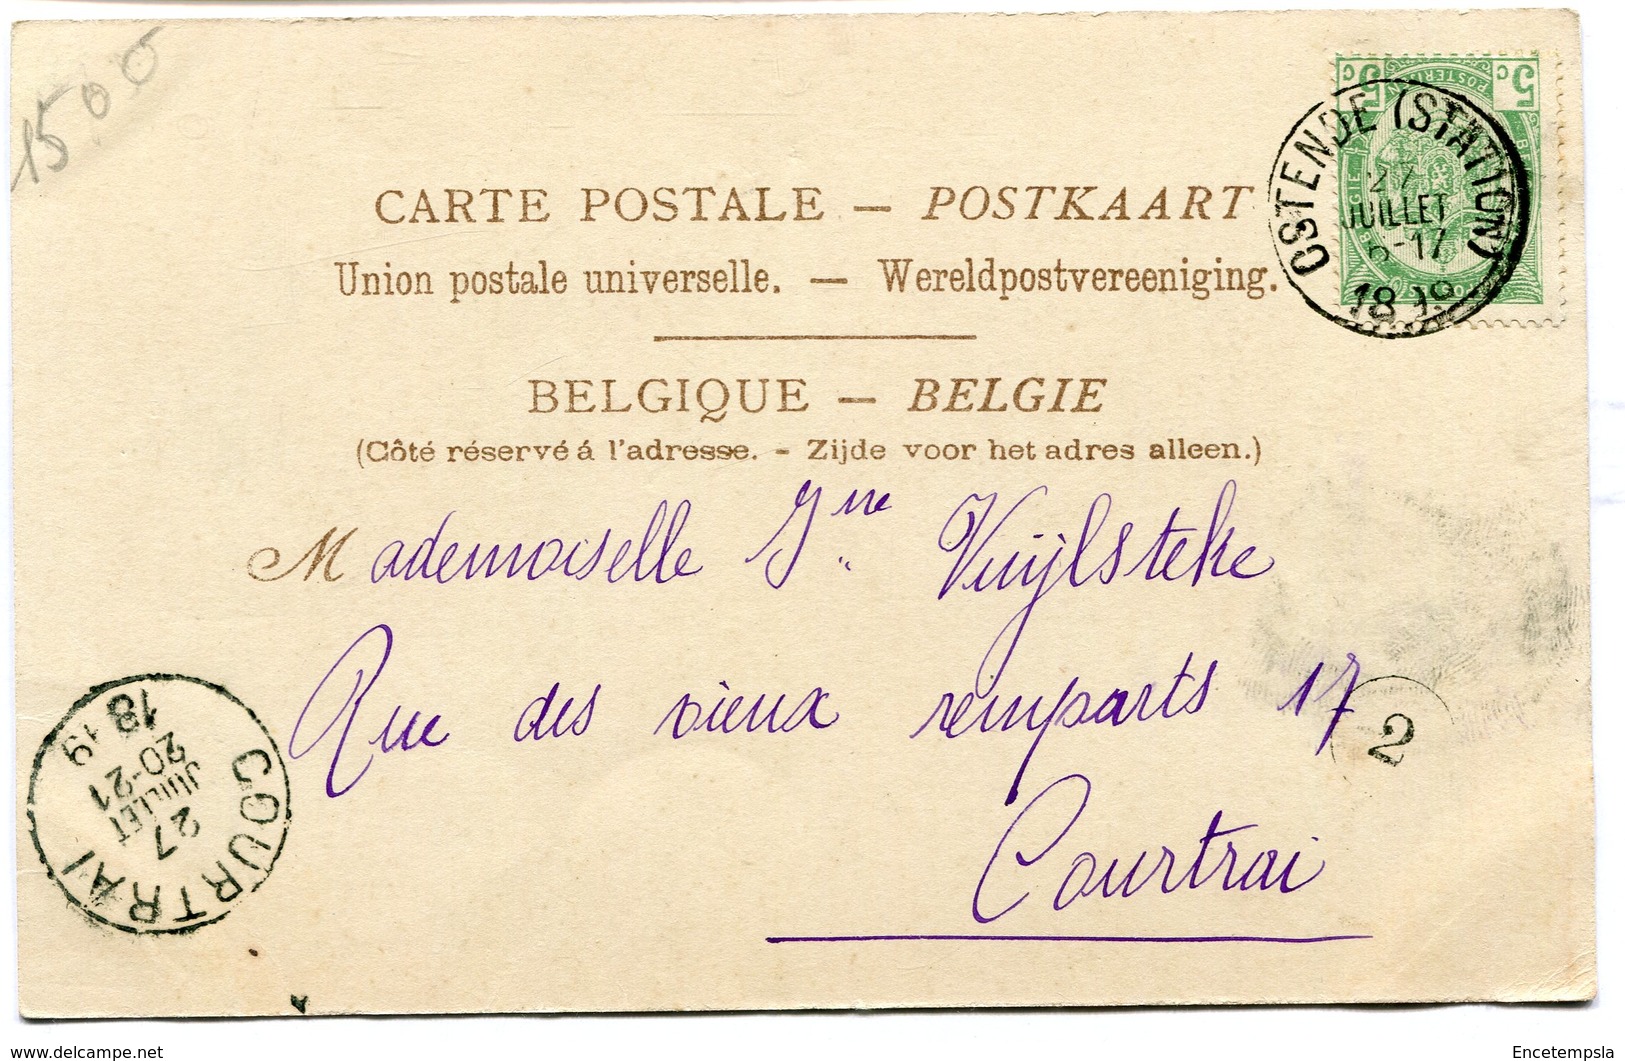 1500
CARTE POSTALE — POSTKAART
Union postale universelle. — Wereldpostvereeniging.
BELGIQUE — BELGIE
(Côté réservé á l'adresse. - Zijde voor het adres alleen.)
Mademoiselle Vuijlsteke
Rue des vieux remparts 17
Courtrai
5 c 5 c
OSTENDE (STATION)
27
JUILLET
-17
18
COURTRAI
27
JUILLET
20-21
18 9
2
Encetempsla